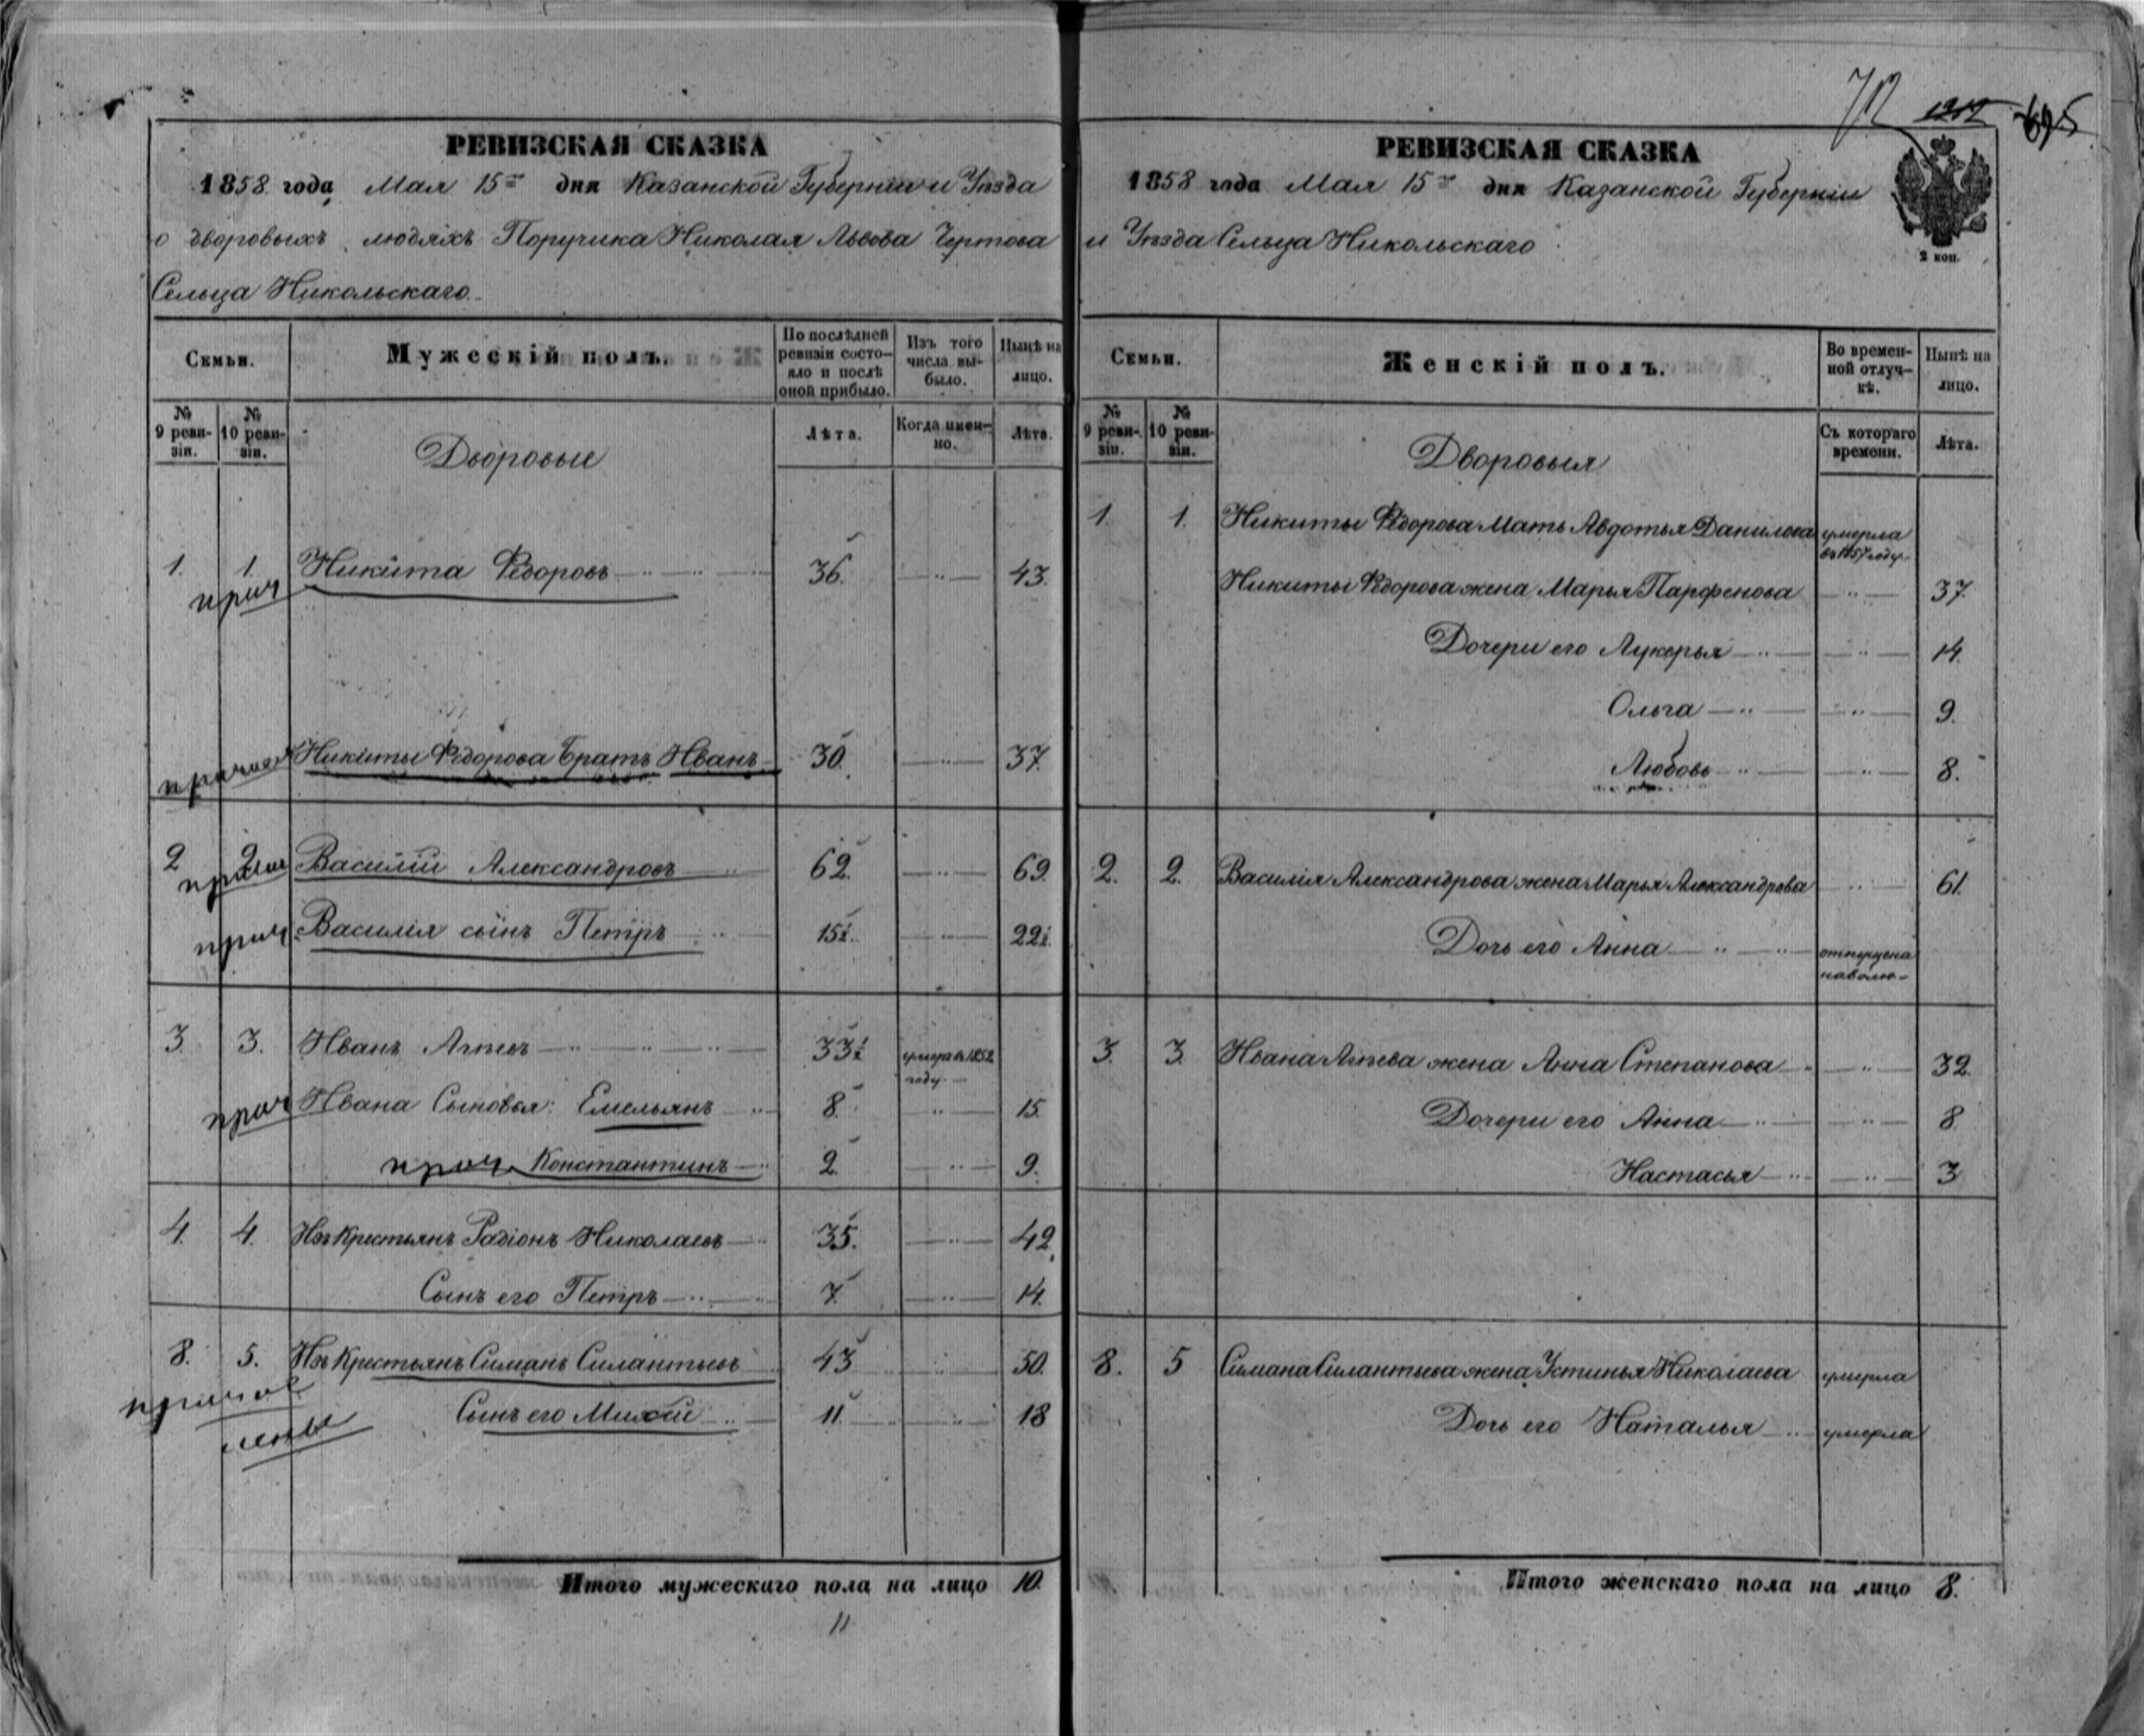 695
РЕВИЗСКАЯ СКАЗКА
1858 года Мая 15го дня Казанской Губерніи и Уѣзда
о дворовыхъ людяхъ Поручика Николая Львова Чертова
Сельца Никольскаго
Семьи.
Мужескій полъ.
По послѣдней ревизіи состо-
яло и послѣ
оной прибыло.
Изъ того
числа вы-
было.
Нынѣ на
лицо.
№
9 реви-
зіи.
№
10 реви-
зіи.
Дворовые
Лѣта.
Когда имен-
но.
Лѣта.
1. 1. Никита Ѳедоровъ 36. 43.
прич
Никиты Ѳедорова Братъ Иванъ 30. 37.
2 2 Василій Александровъ 62. 69.
Василія сынъ Петръ 15½. 22½.
прич
3 3. Иванъ Агѣевъ 33½ умеръ в 1852
году
прич Ивана Сыновья: Емельянъ 8. 15.
прич Константинъ 2. 9.
4. 4. Изъ Крестьянъ Радіонъ Николаевъ 35. 42.
Сынъ его Петръ 7. 14.
8. 5. Изъ Крестьянъ Симанъ Силантьевъ 43 50.
Сынъ его Михей 11. 18
Итого мужескаго пола на лицо 10.
11
РЕВИЗСКАЯ СКАЗКА
1858 года Мая 15го дня Казанской Губерніи
и Уѣзда Сельца Никольскаго
2 коп.
Семьи.
Женскій полъ.
Во времен-
ной отлуч-
кѣ.
Нынѣ на
лицо.
№
9 реви-
зіи.
№
10 реви-
зіи.
Дворовыя
Съ котораго
времени.
Лѣта.
1. 1. Никиты Ѳедорова Мать Авдотья Данилова умерла
въ 1857 году
Никиты Ѳедорова жена Марья Парфенова 37.
Дочери его Лукерья 14.
Ольга 9.
Любовь 8.
2. 2. Василія Александрова жена Марья Александрова 61.
Дочь его Анна отпущена
наволю
3. 3. Ивана Агѣева жена Анна Степанова 32.
Дочери его Анна 8
Настасья 3
8. 5 Симана Силантьева жена Устинья Николаева умерла
Дочь его Наталья умерла
Итого женскаго пола на лицо 8.